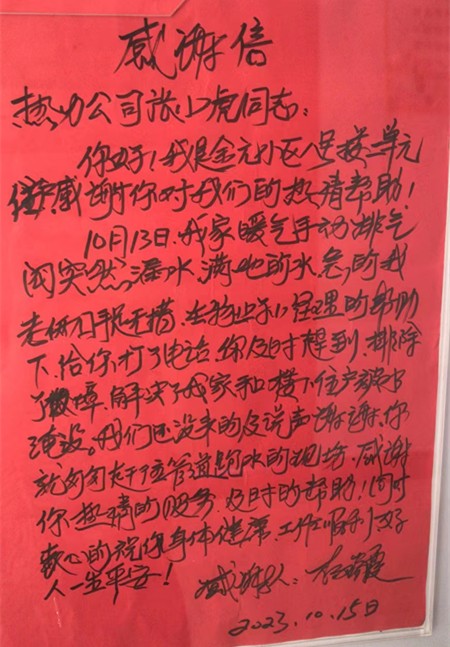 感谢信
热力公司张小虎同志:
你好!我是金元小区八号楼二单元
住户感谢你对我们的热情帮助!
10月13日,我家暖气手动排气
阀突然漏水,满地的水,急的我
老伴手足无措,在物业小经理的帮助
下,给你打了电话,你及时赶到,排除
了故障,解决了我家和楼下住户被水
淹没。我们还没来的及说声谢谢,你
就匆匆赶下位管道跑水的现场,感谢
你热情的服务,及时的帮助!同时
衷心的祝你身体健康,工作顺利,好
人一生平安!
感谢人:任
2023.10.15日